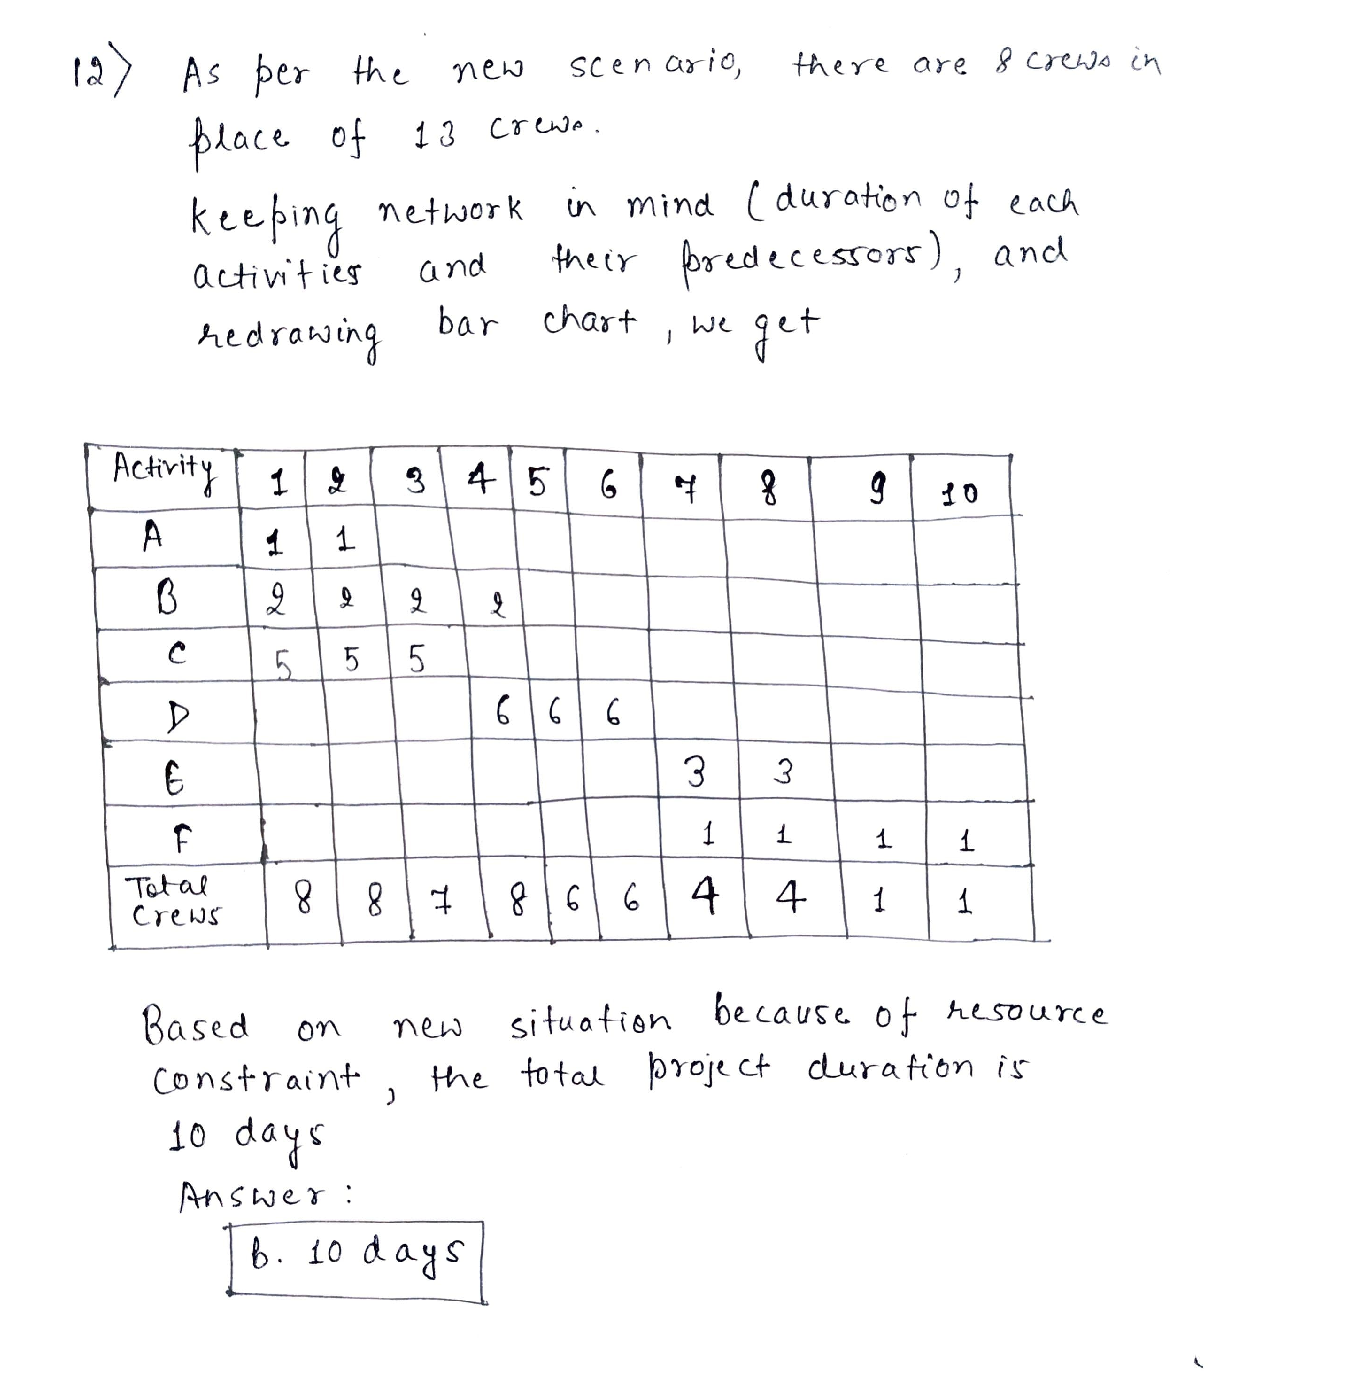 12) As per the new scenario, there are 8 crews in
place of 13 crews.
keeping network in mind (duration of each
activities and their predecessors), and
redrawing bar chart, we get
Activity 1 2 3 4 5 6 7 8 9 10
A 1 1
B 2 2 2 2
C 5 5 5
D 6 6 6
E 3 3
F 1 1 1 1
Total
Crews 8 8 7 8 6 6 4 4 1 1
Based on new situation because of resource
constraint, the total project duration is
10 days
Answer:
b. 10 days